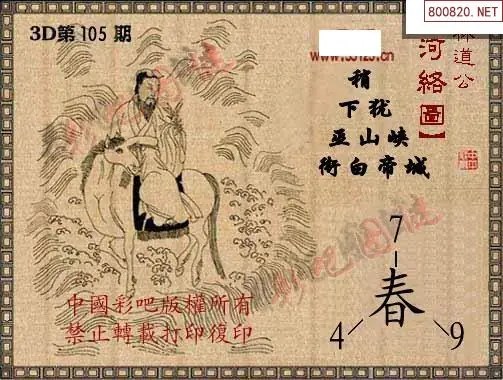 800820.NET
3D第105期
林道公
河絡圖】
稍
下犹
亚山峡
街白帝城
7
春
4
9
中國彩吧版權所有
禁止轉載打印復印